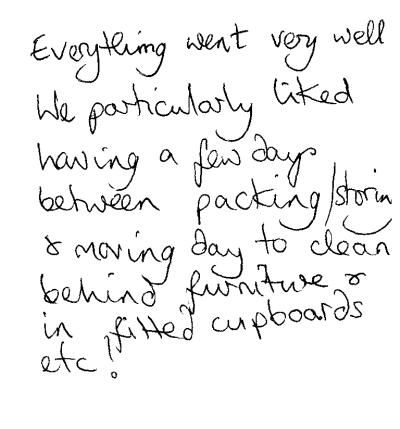 Everything went very well
We particularly liked
having a few days
between packing/storin
& moving day to clean
behind furniture &
in fitted cupboards
etc!